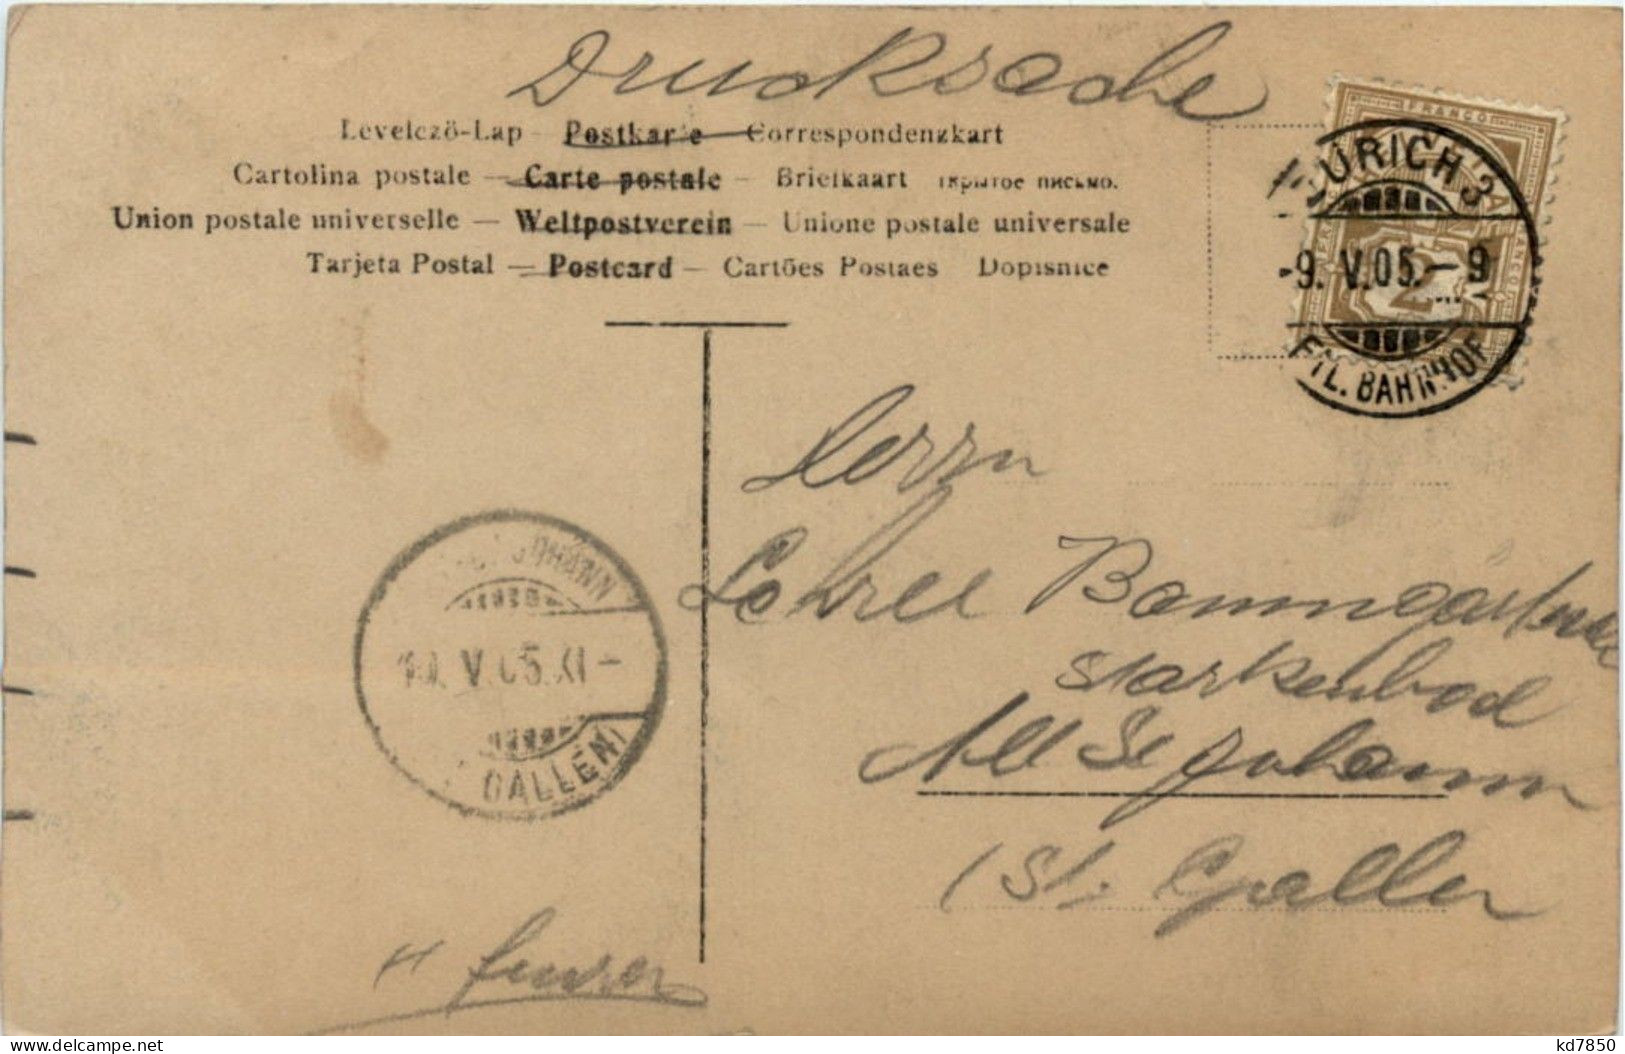 Drucksache
Levelező-Lap – Postkarte – Correspondenzkart
Cartolina postale – Carte postale – Briefkaart крытое письмо.
Union postale universelle – Weltpostverein – Unione postale universale
Tarjeta Postal – Postcard – Cartões Postaes Dopisnice
FRANCO
ZÜRICH 3
-9. V. 05. – 9
FIL. BAHNHOF
2
Herrn
Baumgärtner
Starkenbad
Alt St Johann
(St. Gallen
JOHANN
10. V. 05. XI –
GALLEN
www.delcampe.net
kd7850